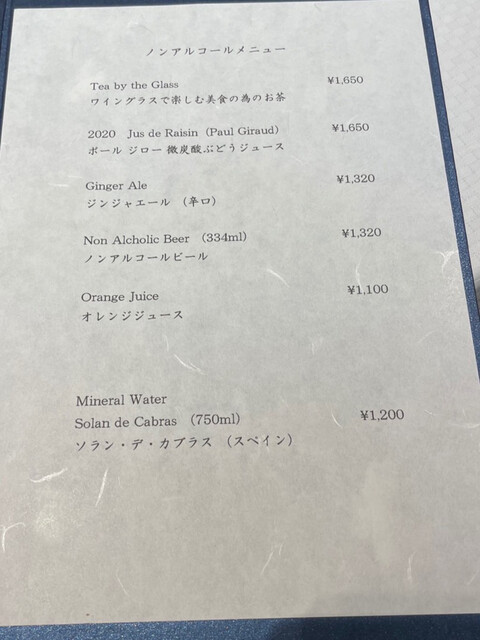 ノンアルコールメニュー
Tea by the Glass ¥1,650
ワイングラスで楽しむ美食の為のお茶
2020 Jus de Raisin (Paul Giraud) ¥1,650
ポール ジロー 微炭酸ぶどうジュース
Ginger Ale ¥1,320
ジンジャエール （辛口）
Non Alcholic Beer (334ml) ¥1,320
ノンアルコールビール
Orange Juice ¥1,100
オレンジジュース
Mineral Water
Solan de Cabras (750ml) ¥1,200
ソラン・デ・カブラス （スペイン）